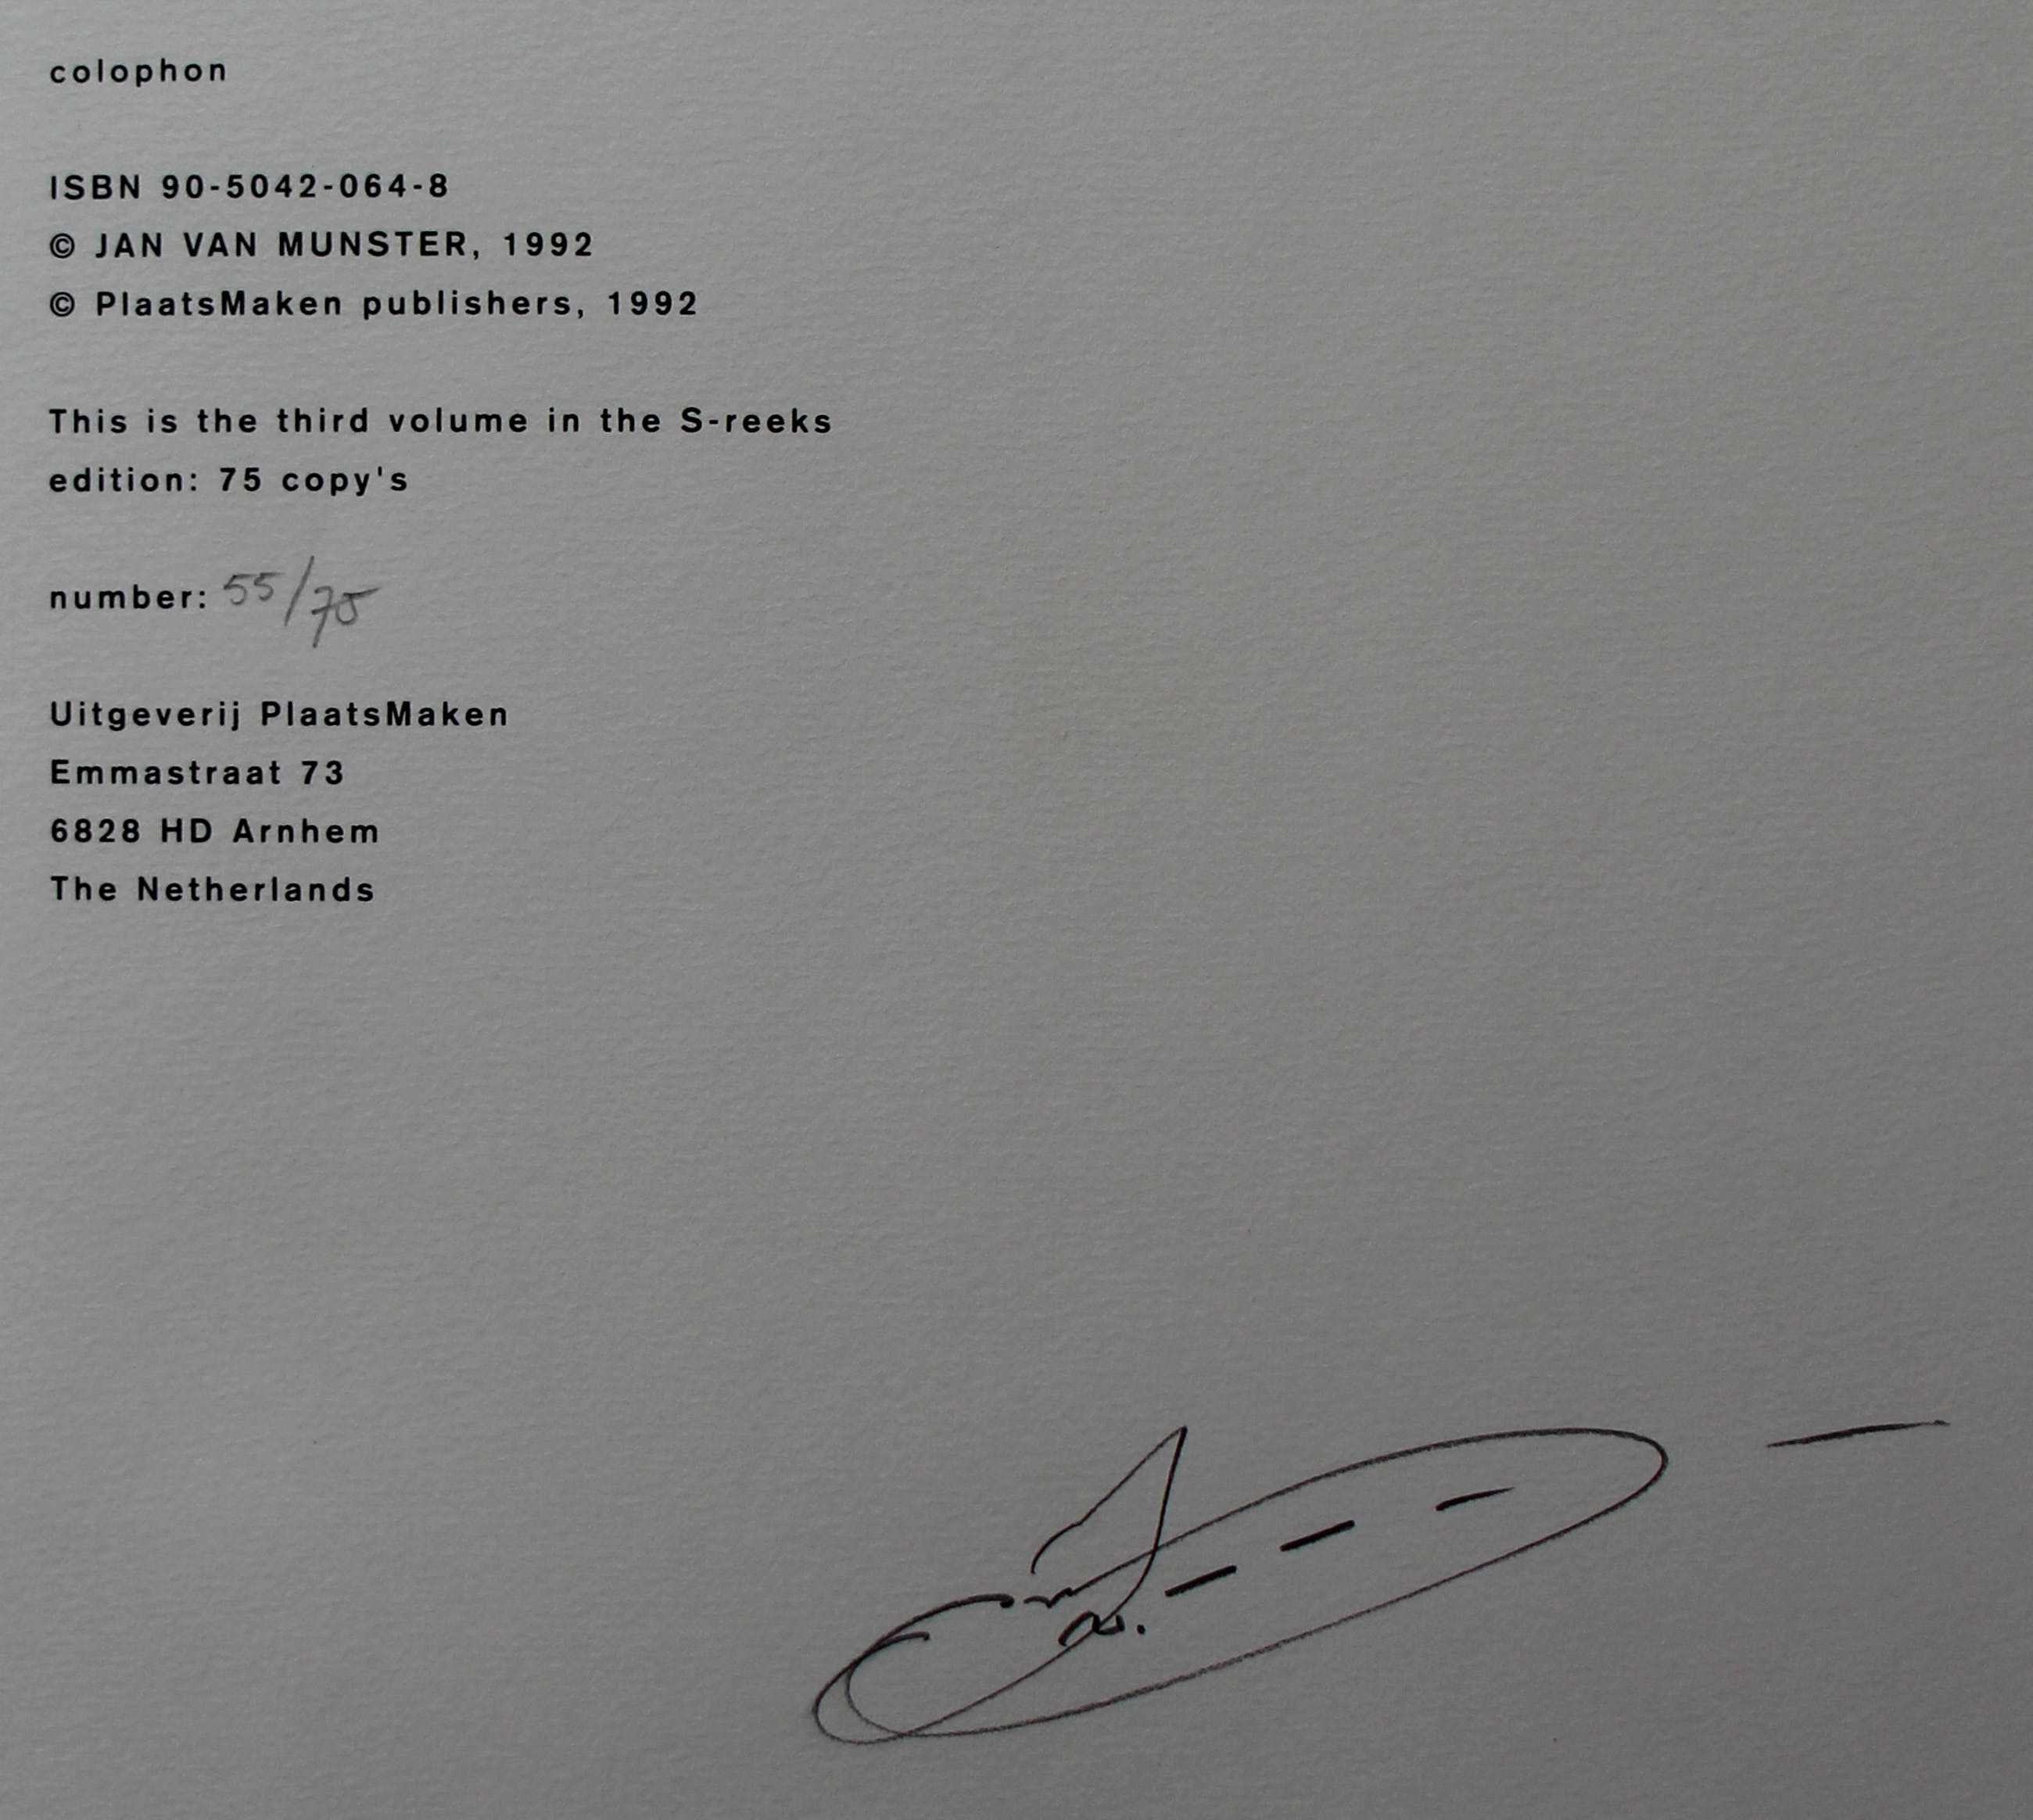 colophon
ISBN 90-5042-064-8
© JAN VAN MUNSTER, 1992
© PlaatsMaken publishers, 1992
This is the third volume in the S-reeks
edition: 75 copy's
number: 55/75
Uitgeverij PlaatsMaken
Emmastraat 73
6828 HD Arnhem
The Netherlands